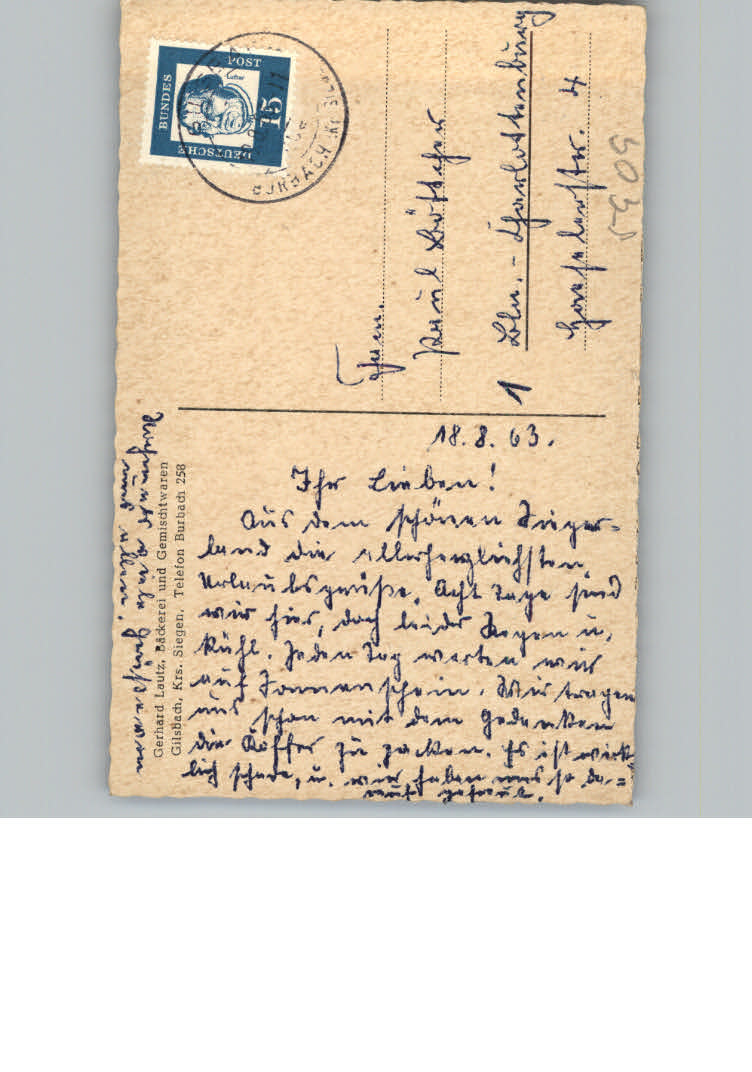 18.8.63.
Ihr Lieben!
Aus dem schönen Sieger=
land die allerherzlichsten
Urlaubsgrüße. Acht Tage sind
wir hier, doch leider Regen u.
kühl. Jeden Tag warten wir
auf Sonnenschein. Wir tragen
uns schon mit dem Gedanken
die Koffer zu packen. Es ist wirk=
lich schade, u. wir haben uns so da=
rauf gefreut.
viele Grüße von
uns allen.
Gerhard Lautz, Bäckerei und Gemischtwaren
Gilsbach, Krs. Siegen, Telefon Burbach 258
DEUTSCHE
BUNDES
POST
Luther
15
BURBACH
Fam.
Paul Böttcher
1 Bln.-Charlottenburg
4
5305